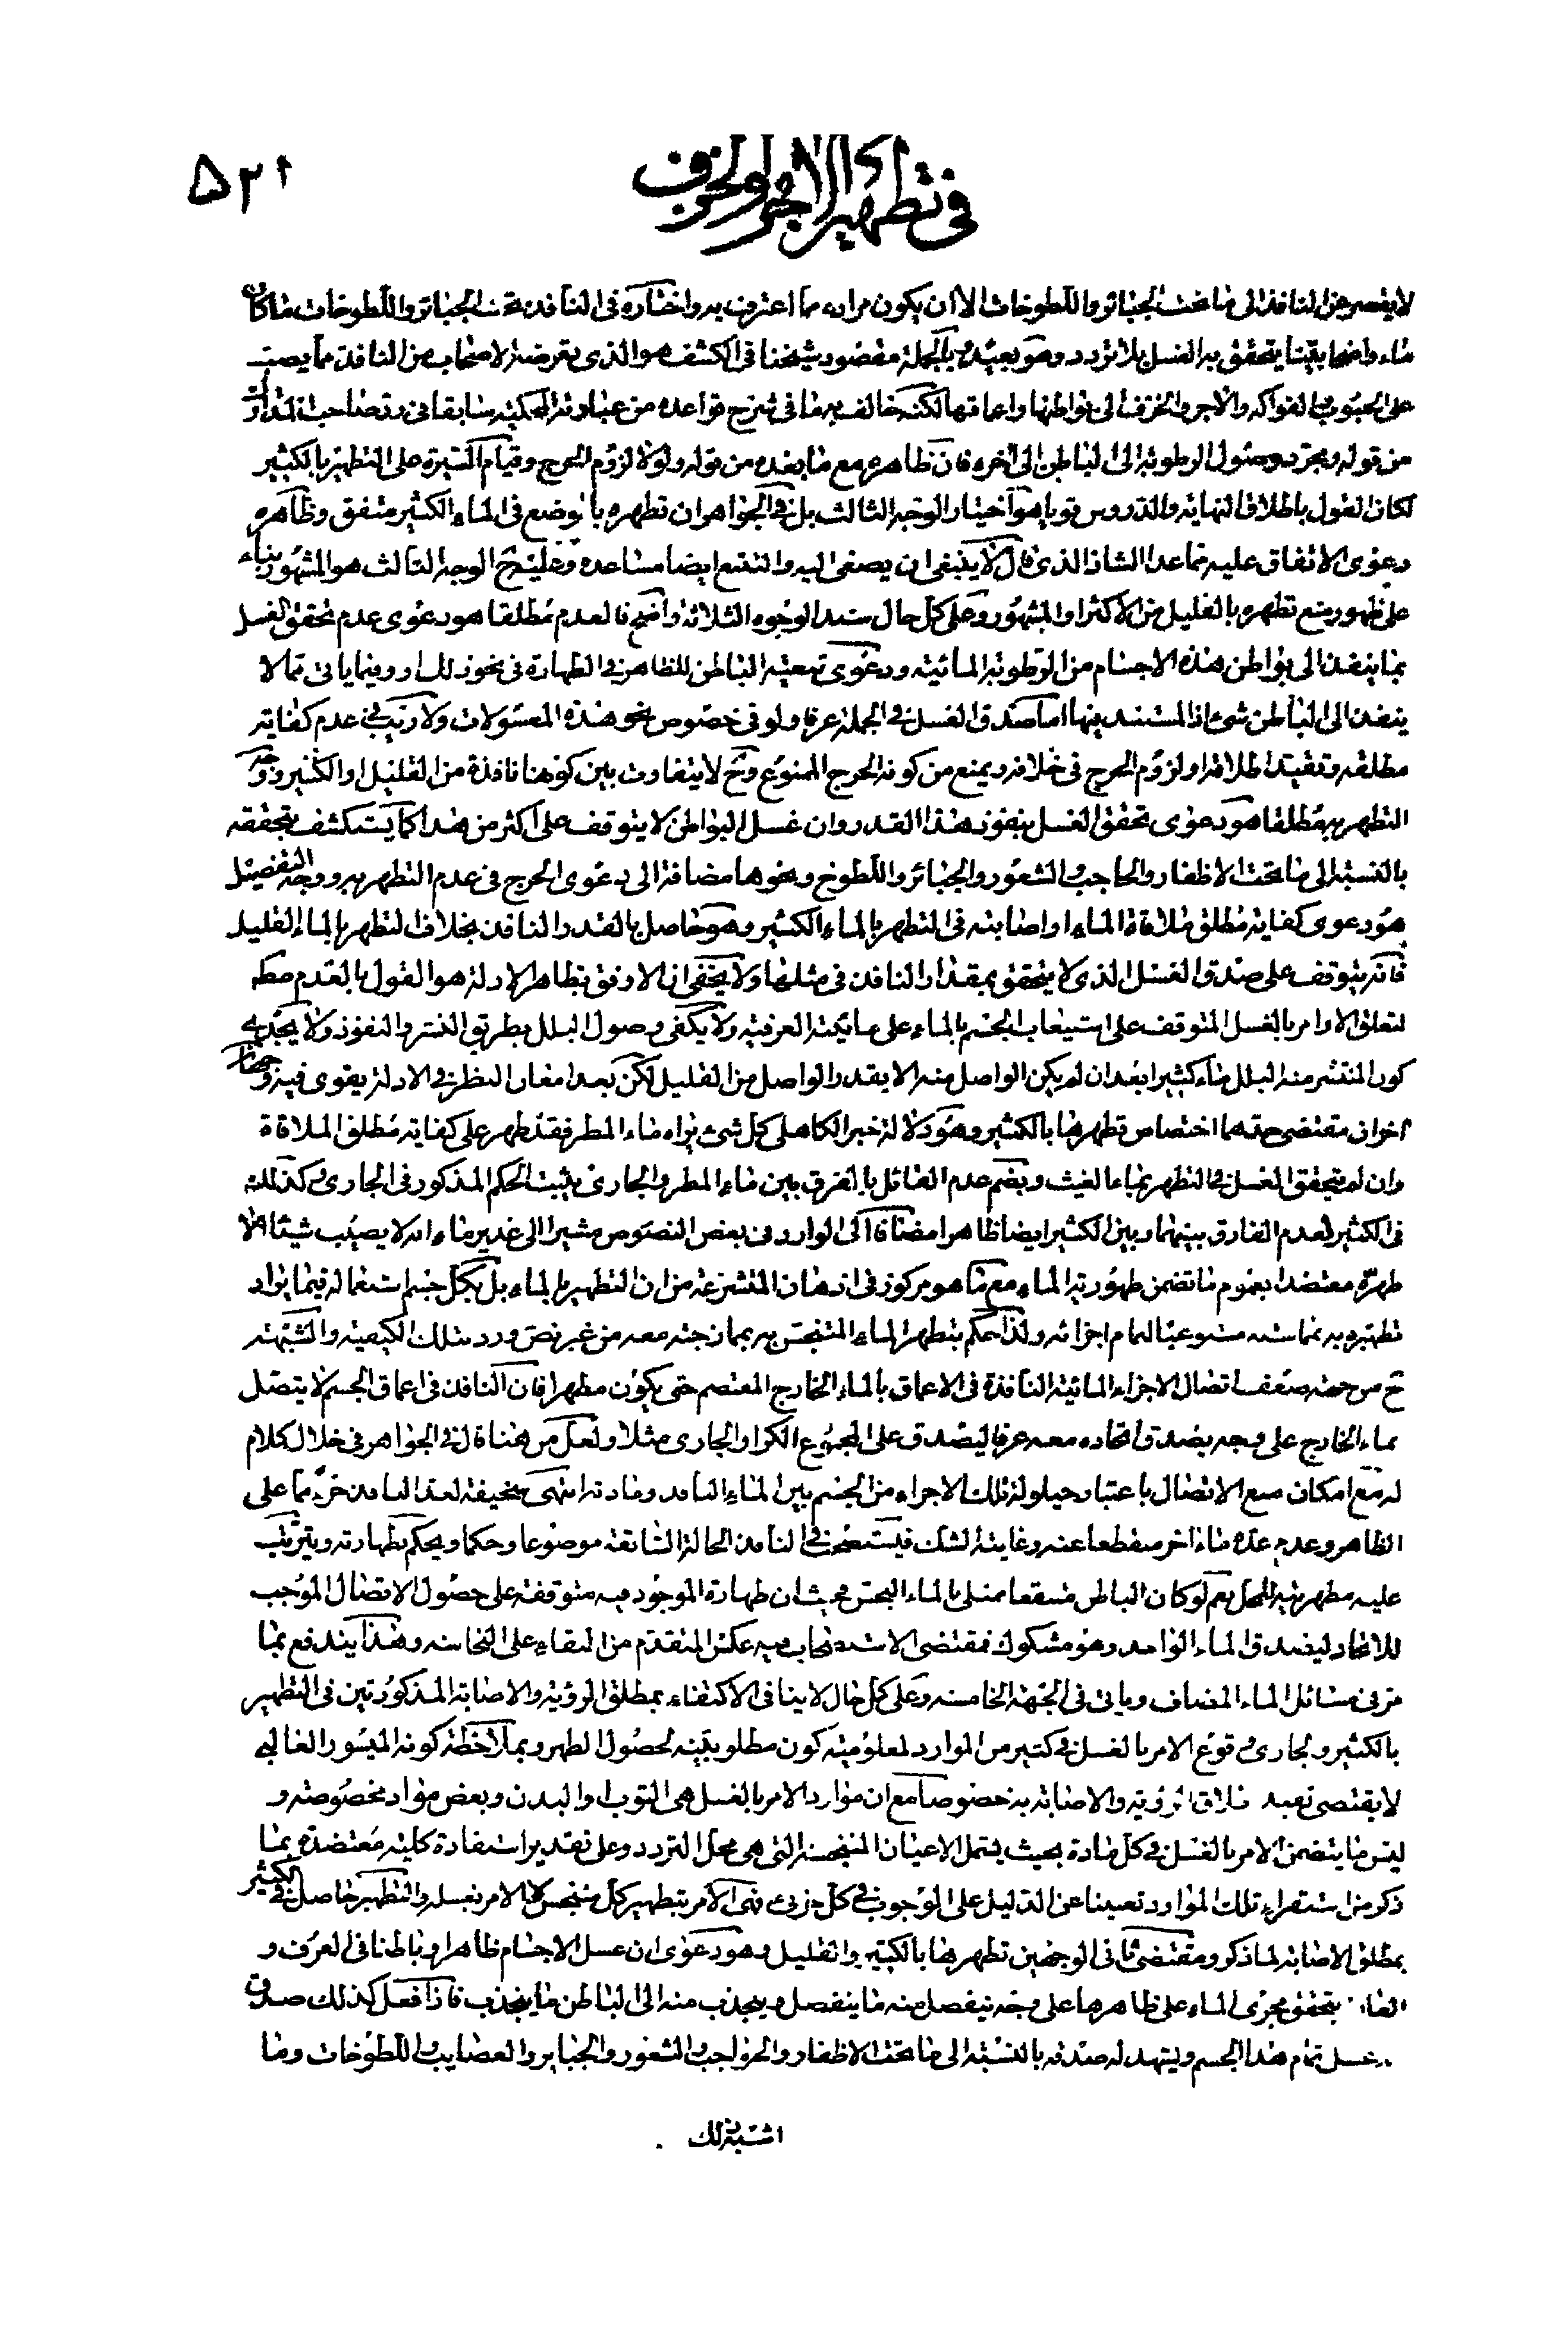 في تطهير الاجر والخزف
٥٢١
لا يقصر عن النافذ الى ما تحت الجبائر واللطوخات الا أن يكون مراده مما اعترف به واختاره في النافذ تحت الجبائر واللطوخات ما كان
ماء واضحا يقينا يتحقق به الغسل بلا تردد وهو بعيد وبالجملة مقصود شيخنا في الكشف هو الذي تعرضه الاصحاب من النافذ مما يصب
على الحبوب والفواكه والاجر والخزف الى بواطنها واعماقها لكنه خالف به ما في شرح قواعده من عبارته المحكية سابقا في
من قوله ومجرد وصول الرطوبة الى الباطن الى آخره فان ظاهره مع ما بعده من قوله ولولا لزوم الحرج وقيام السيرة على التطهير بالكثير
لكان القول باطلاق النهاية والدروس قويا هو اختيار الوجه الثالث بل في الجواهر ان تطهره بالوضع في الماء الكثير متفق وظاهره
دعوى الاتفاق عليه مما عدا الشاذ الذي قال لا ينبغي ان يصغى اليه والتتبع ايضا مساعده وعليه فح الوجه الثالث هو المشهور بناء
على ظهور منع تطهره بالقليل من الاكثر او المشهور وعلى كل حال سند الوجوه الثلاثة واضح فالعدم مطلقا هو دعوى عدم تحقق الغسل
بما ينفذ الى بواطن هذه الاجسام من الرطوبة المائية ودعوى تبعية الباطن للظاهر في الطهارة في نحو ذلك او وفيما ياتي مما لا
ينفذ الى الباطن شئ اذ المستند فيها اما صدق الغسل في الجملة عرفا ولو في خصوص نحو هذه المغسولات ولا ريب في عدم كفاية
مطلقه وتقييد اطلاقه او لزوم الحرج في خلافه ويمنع من كونه الحرج الممنوع وح لا يتفاوت بين كونها نافذة من القليل او الكثير ووجه
التطهر به مطلقا هو دعوى تحقق الغسل بنفوذ هذا القدر وان غسل البواطن لا يتوقف على اكثر من هذا كما يستكشف بتحققه
بالنسبة الى ما تحت الاظفار والحاجب والشعور والجبائر واللطوخ ونحوها مضافة الى دعوى الحرج في عدم التطهر به ووجه التفصيل
هو دعوى كفاية مطلق ملاقاة الماء او اصابته في التطهر بالماء الكثير وهو حاصل بالقدر النافذ بخلاف التطهر بالماء القليل
فانه يتوقف على صدق الغسل الذي لا يتحقق بمقدار النافذ في مثلها ولا يخفى ان الاوفق بظاهر الادلة هو القول بالعدم مطه
لتعلق الاوامر بالغسل المتوقف على استيعاب الجسم بالماء على مائيته العرفية ولا يكفي وصول البلل بطريق النشر والنفوذ ولا يجدي
كون المنتشر منه البلل ماء كثيرا بعد ان لم يكن الواصل منه الا بقدر الواصل من القليل لكن بعد امعان النظر في الادلة يقوى فيه وجهان
اخران مقتضى احدهما اختصاص تطهرها بالكثير وهو دلالة خبر الكاهلي كل شئ يراه ماء المطر فقد طهر على كفاية مطلق الملاقاة
وان لم يتحقق الغسل في التطهر بماء الغيث وبضم عدم القائل بالفرق بين ماء المطر والجاري يثبت الحكم المذكور في الجاري وكذلك
في الكثير لعدم الفارق بينهما وبين الكثير ايضا ظاهرا مضافا الى الوارد في بعض النصوص مشيرا الى غدير ماء ان لا يصيب شيئا الا
طهره معتضدا بعموم ما تضمن طهورية الماء مع ما هو مركوز في اذهان المتشرعة من ان التطهير بالماء بل بكل جسم استعماله فيما يراد
تطهيره به بمماسته مستوعبا لتمام اجزائه ولذا حكم بتطهر الماء المتنجس به بممازجته معه من غير نص ورد بتلك الكيفية والشبهة
ح من جهة ضعف اتصال الاجزاء المائية النافذة في الاعماق بالماء الخارج المعتصم حتى يكون مطهرا فان النافذ في اعماق الجسم لا يتصل
بماء الخارج على وجه يصدق اتحاده معه عرفا ليصدق على المجموع الكر او الجاري مثلا ولعل من هنا قال في الجواهر في خلال كلام
له مع امكان منع الاتصال باعتبار حيلولة تلك الاجزاء من الجسم بين الماء النافذ ومادته انتهى
الظاهر وعدم عده ماء آخر منقطعا عنه وغاية الشك فيستصحب في النافذ الحالة السابقة موضوعا وحكما ويحكم بطهارته ويترتب
عليه مطهريته للمحل نعم لو كان الباطن ممتلئ بالماء النجس طهارة الموجود فيه متوقفة على حصول الاتصال الموجب
للاتحاد ليصدق الماء الواحد وهو مشكوك فمقتضى الاستصحاب فيه عكس المتقدم من البقاء على النجاسة وهذا يندفع بما
مر في مسائل الماء المضاف وياتي في الجهة الخامسة وعلى كل حال لا ينافي الاكتفاء بمطلق الرؤية والاصابة المذكورتين في التطهير
بالكثير والجاري وقوع الامر بالغسل في كثير من الموارد لمعلومية كون مطلوبيته لحصول الطهر وبملاحظة كونه الميسور الغالبي
لا يقتضي تقييد الرؤية والاصابة به خصوصا مع ان موارد الامر بالغسل هي الثوب والبدن وبعض مواد مخصوصة و
ليس ما يتضمن الامر بالغسل في كل مادة بحيث يشمل الاعيان المتنجسة التي هي محل التردد وعلى تقدير استفادة كلية معتضدة بما
ذكر من استقراء تلك الموارد على الوجوب في كل جزئي فهي الامر بتطهير كل متنجس لا الامر بغسله والتطهير حاصل في الكثير
بمطلق الاصابة لما ذكر ومقتضى ثاني الوجهين تطهرها بالكثير والقليل وهو دعوى ان غسل الاجسام ظاهرا وباطنا في العرف و
يتحقق بجري الماء على ظاهرها على وجه ينفصل منه ما ينفصل وينجذب منه الى الباطن ما ينجذب فاذا فعل كذلك صدق
غسل تمام هذا الجسم ويشهد له صدقه بالنسبة الى ما تحت الاظفار والحواجب والشعور والجباير والعصايب واللطوخات وما
اشبه ذلك